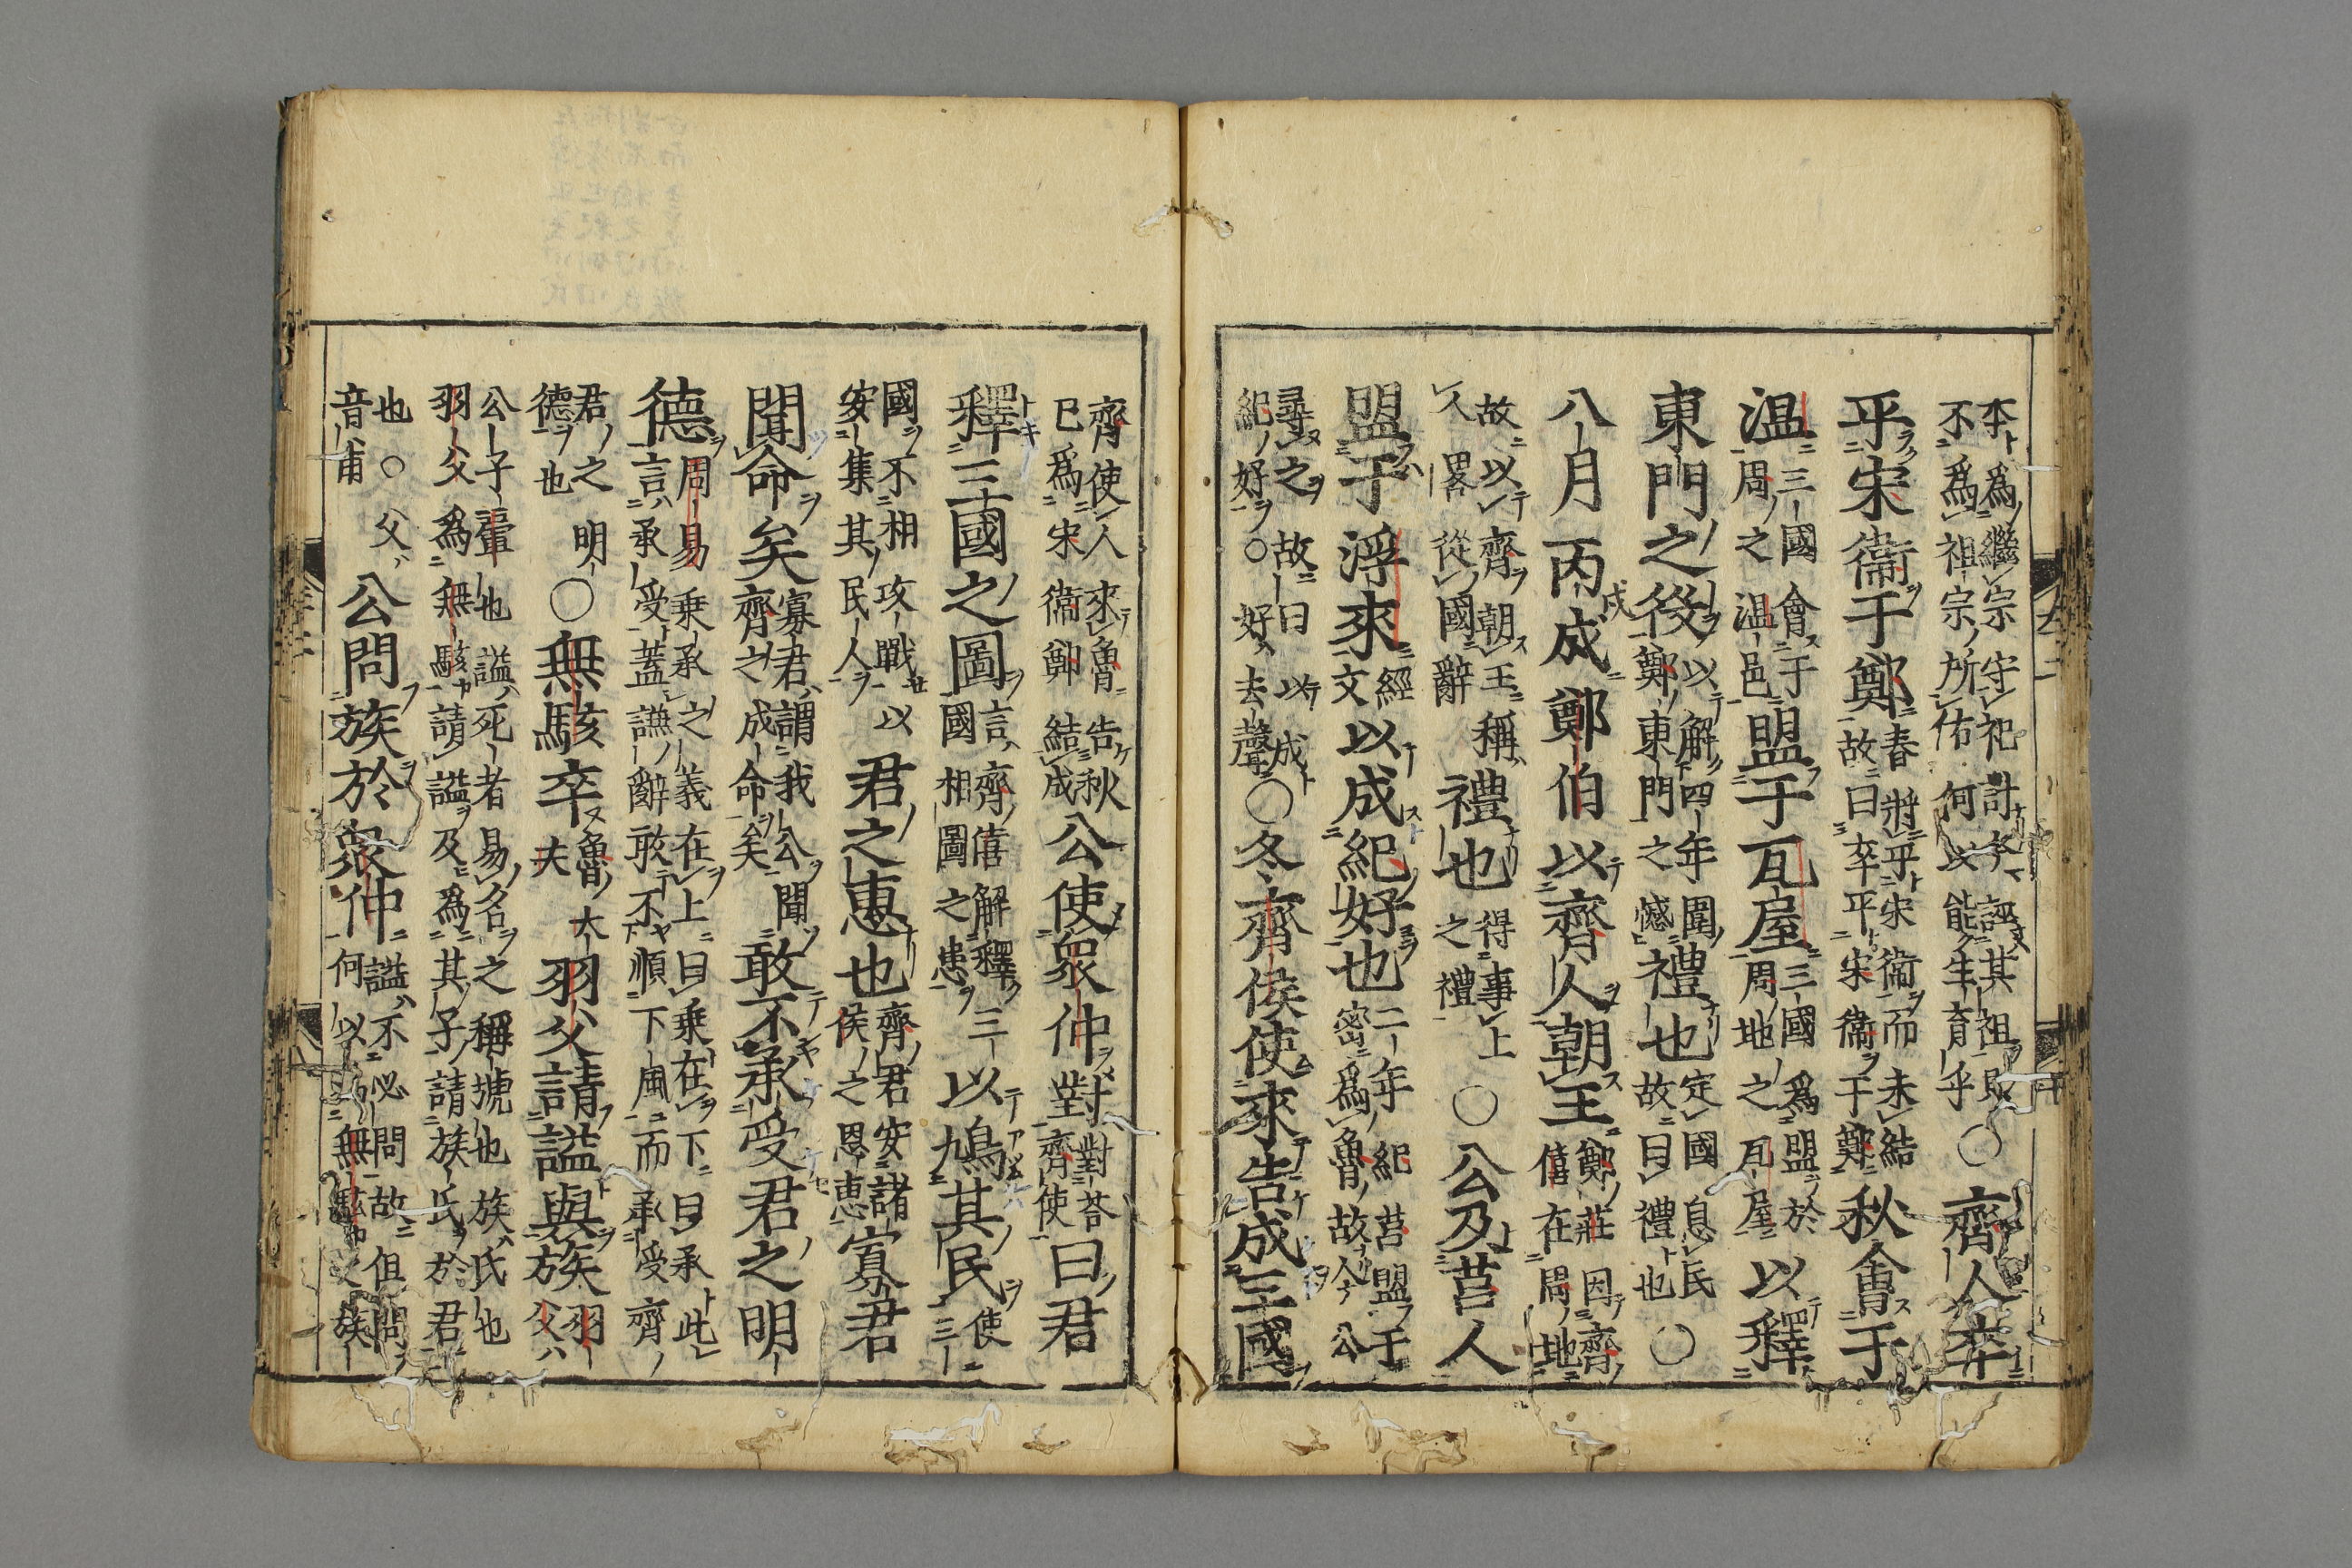 本爲繼宗守祀計今誣其祖 不爲祖宗所佑何以能生育乎 ○齊人卒
平宋衛于鄭 春將平宋衛而未結 故曰卒平宋衛于鄭 秋會于
溫 三國會于 周之溫邑 盟于瓦屋 三國爲盟於 周地之瓦屋 以釋
東門之役 以解四年圍 鄭東門之憾 禮也 定國息民 故曰禮也 ○
八月丙戌鄭伯以齊人朝王 鄭莊因齊 僖在周地
故以齊朝王稱 人畧從國辭 禮也 得事上 之禮 ○公及莒人
盟于浮來 經 文 以成紀好也 二年紀莒盟于 密爲魯故今公
尋之故曰以成 紀好○好去聲 ○冬齊侯使來告成三國
齊使人來魯告秋 已爲宋衛鄭結成 公使衆仲對 對荅 齊使 曰君
釋三國之圖 言齊僖解釋三 國相圖之患 以鳩其民 使三
國不相攻戰以 安集其民人 君之惠也 齊君安諸 侯之恩惠 寡君
聞命矣 寡君謂我公聞 齊之成命矣 敢不承受君之明
德 周易乗承之義在上曰乗在下曰承此 言承受蓋謙辭敢不順下風而承受齊
君之明 德也 ○無駭卒 魯大 夫 羽父請謚與族 羽 父
公子翬也謚死者易名之稱號也族氏也 羽父爲無駭請謚及爲其子請族氏於君
也○父 音甫 公問族於衆仲 謚不必問故但問 何以爲無駭之族